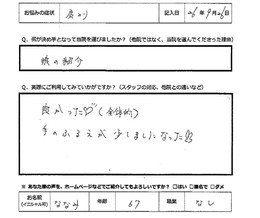 お悩みの症状 肩こり 記入日 26年9月26日
Q. 何が決め手となって当院を選びましたか?(他院ではなく、当院を選んでくださった理由)
娘の紹介
Q. 実際にご利用してみていかがですか?(スタッフの対応、他院との違いなど)
良かった♡(全体的)
手のふるえが少しましになった
※ あなた様の声を、ホームページなどでご紹介してもよろしいですか? □はい □匿名で □ダメ
お名前 (イニシャル可) ななみ 年齢 67 職業 なし